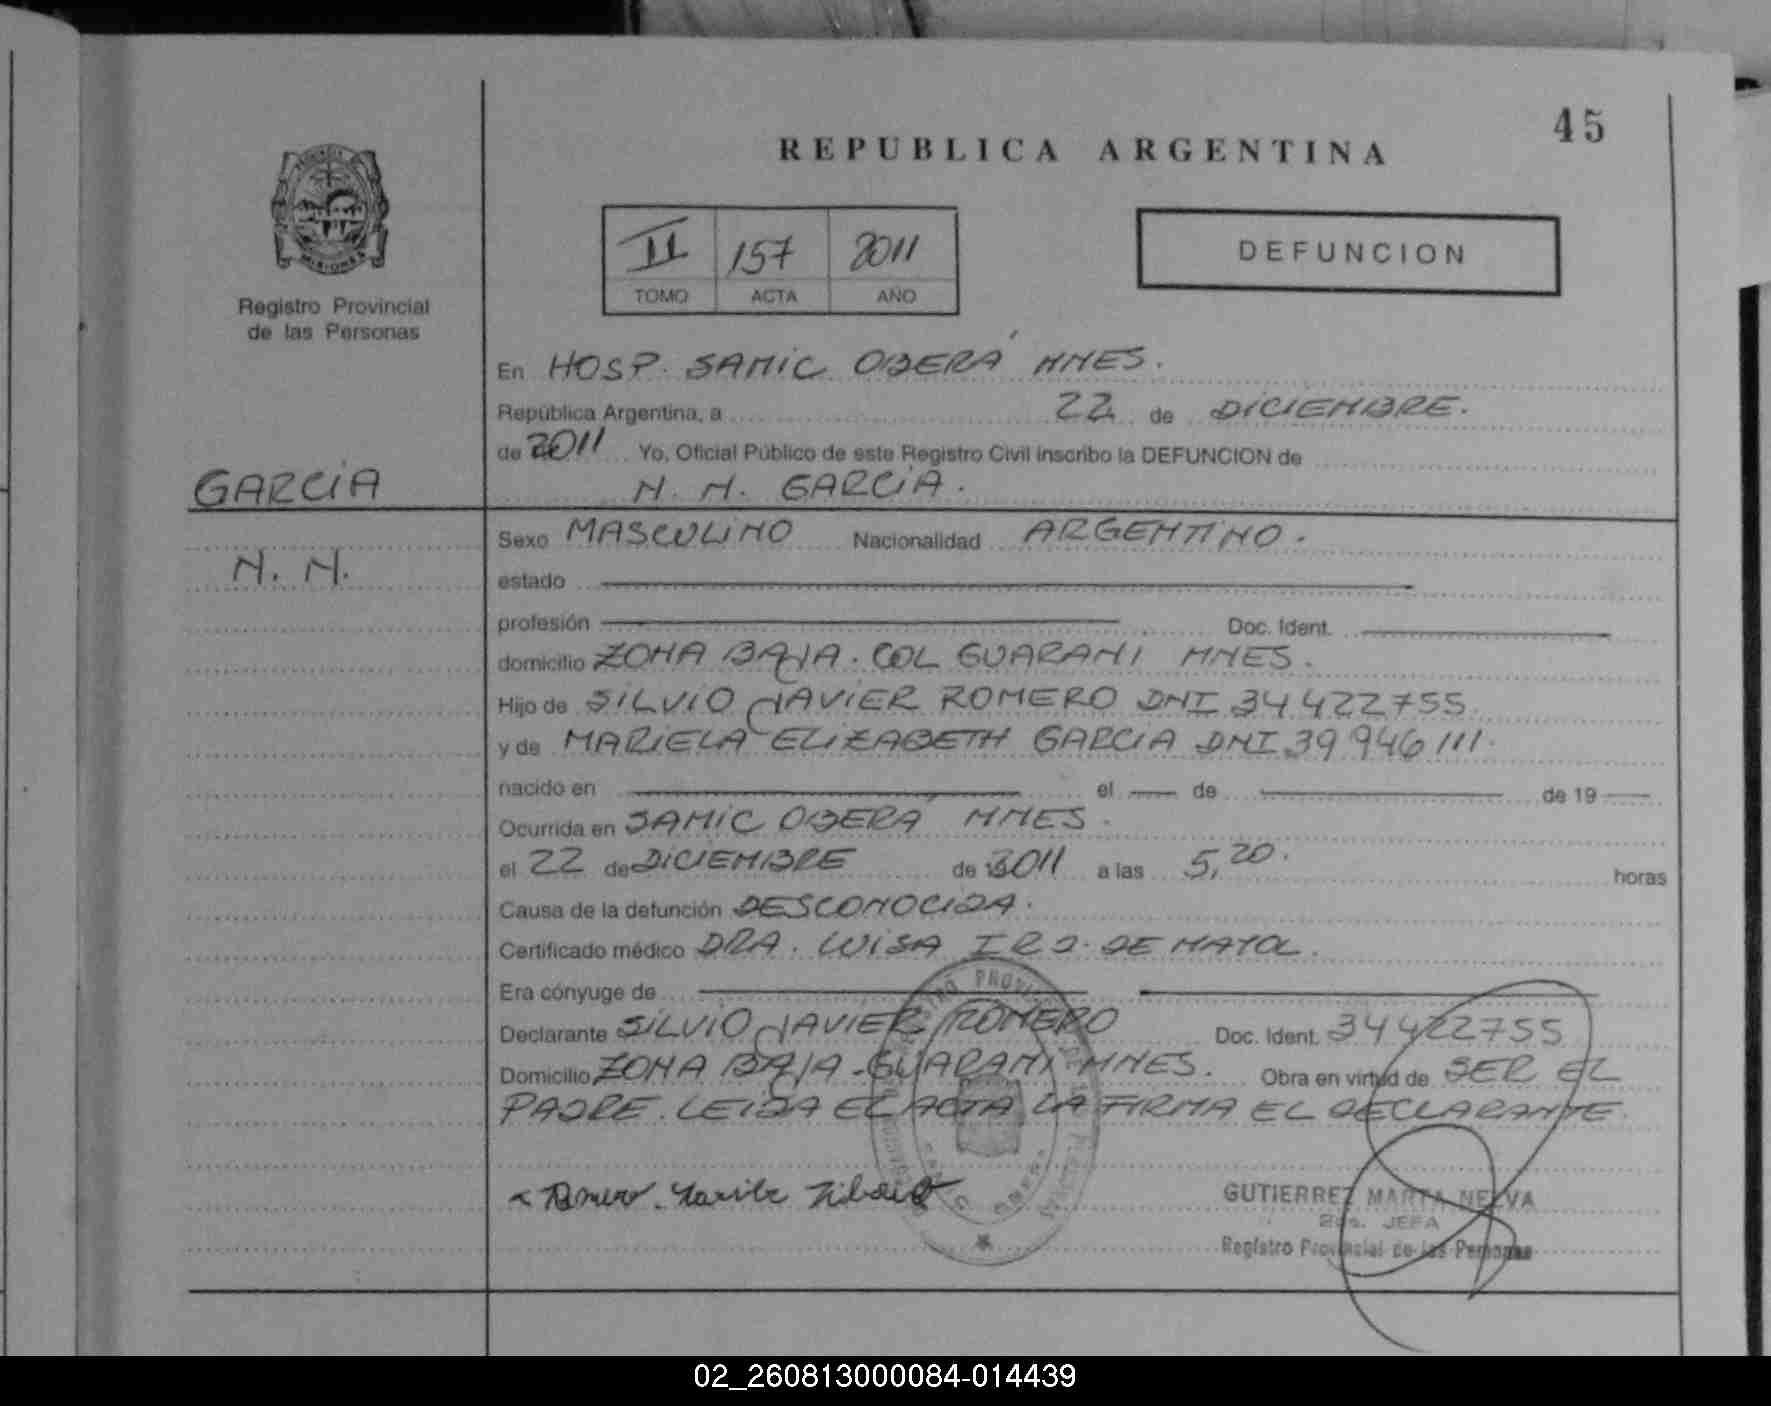 45
REPUBLICA ARGENTINA
PROVINCIA DE MISIONES
Registro Provincial
de las Personas
II 157 2011
TOMO ACTA AÑO
DEFUNCION
En HOSP. SAMIC OBERA MNES.
República Argentina, a 22 de DICIEMBRE.
de 2011 Yo, Oficial Público de este Registro Civil inscribo la DEFUNCION de
GARCIA
N. N. GARCIA.
N. N.
Sexo MASCULINO Nacionalidad ARGENTINO.
estado
profesión Doc. Ident.
domicilio ZONA BAJA. COL GUARANI MNES.
Hijo de SILVIO JAVIER ROMERO DNI 34422755
y de MARIELA ELIZABETH GARCIA DNI 39946111.
nacido en el de de 19
Ocurrida en SAMIC OBERA MNES.
el 22 de DICIEMBRE de 2011 a las 5,20. horas
Causa de la defunción DESCONOCIDA.
Certificado médico DRA. LUISA DE MAYOL.
Era cónyuge de
Declarante SILVIO JAVIER ROMERO Doc. Ident. 34422755
Domicilio ZONA BAJA-GUARANI MNES. Obra en virtud de SER EL
PADRE. LEIDA EL ACTA LA FIRMA EL DECLARANTE.
Romero
GUTIERREZ MARTA NELVA
JEFA
Registro Provincial de las Personas
02_260813000084-014439